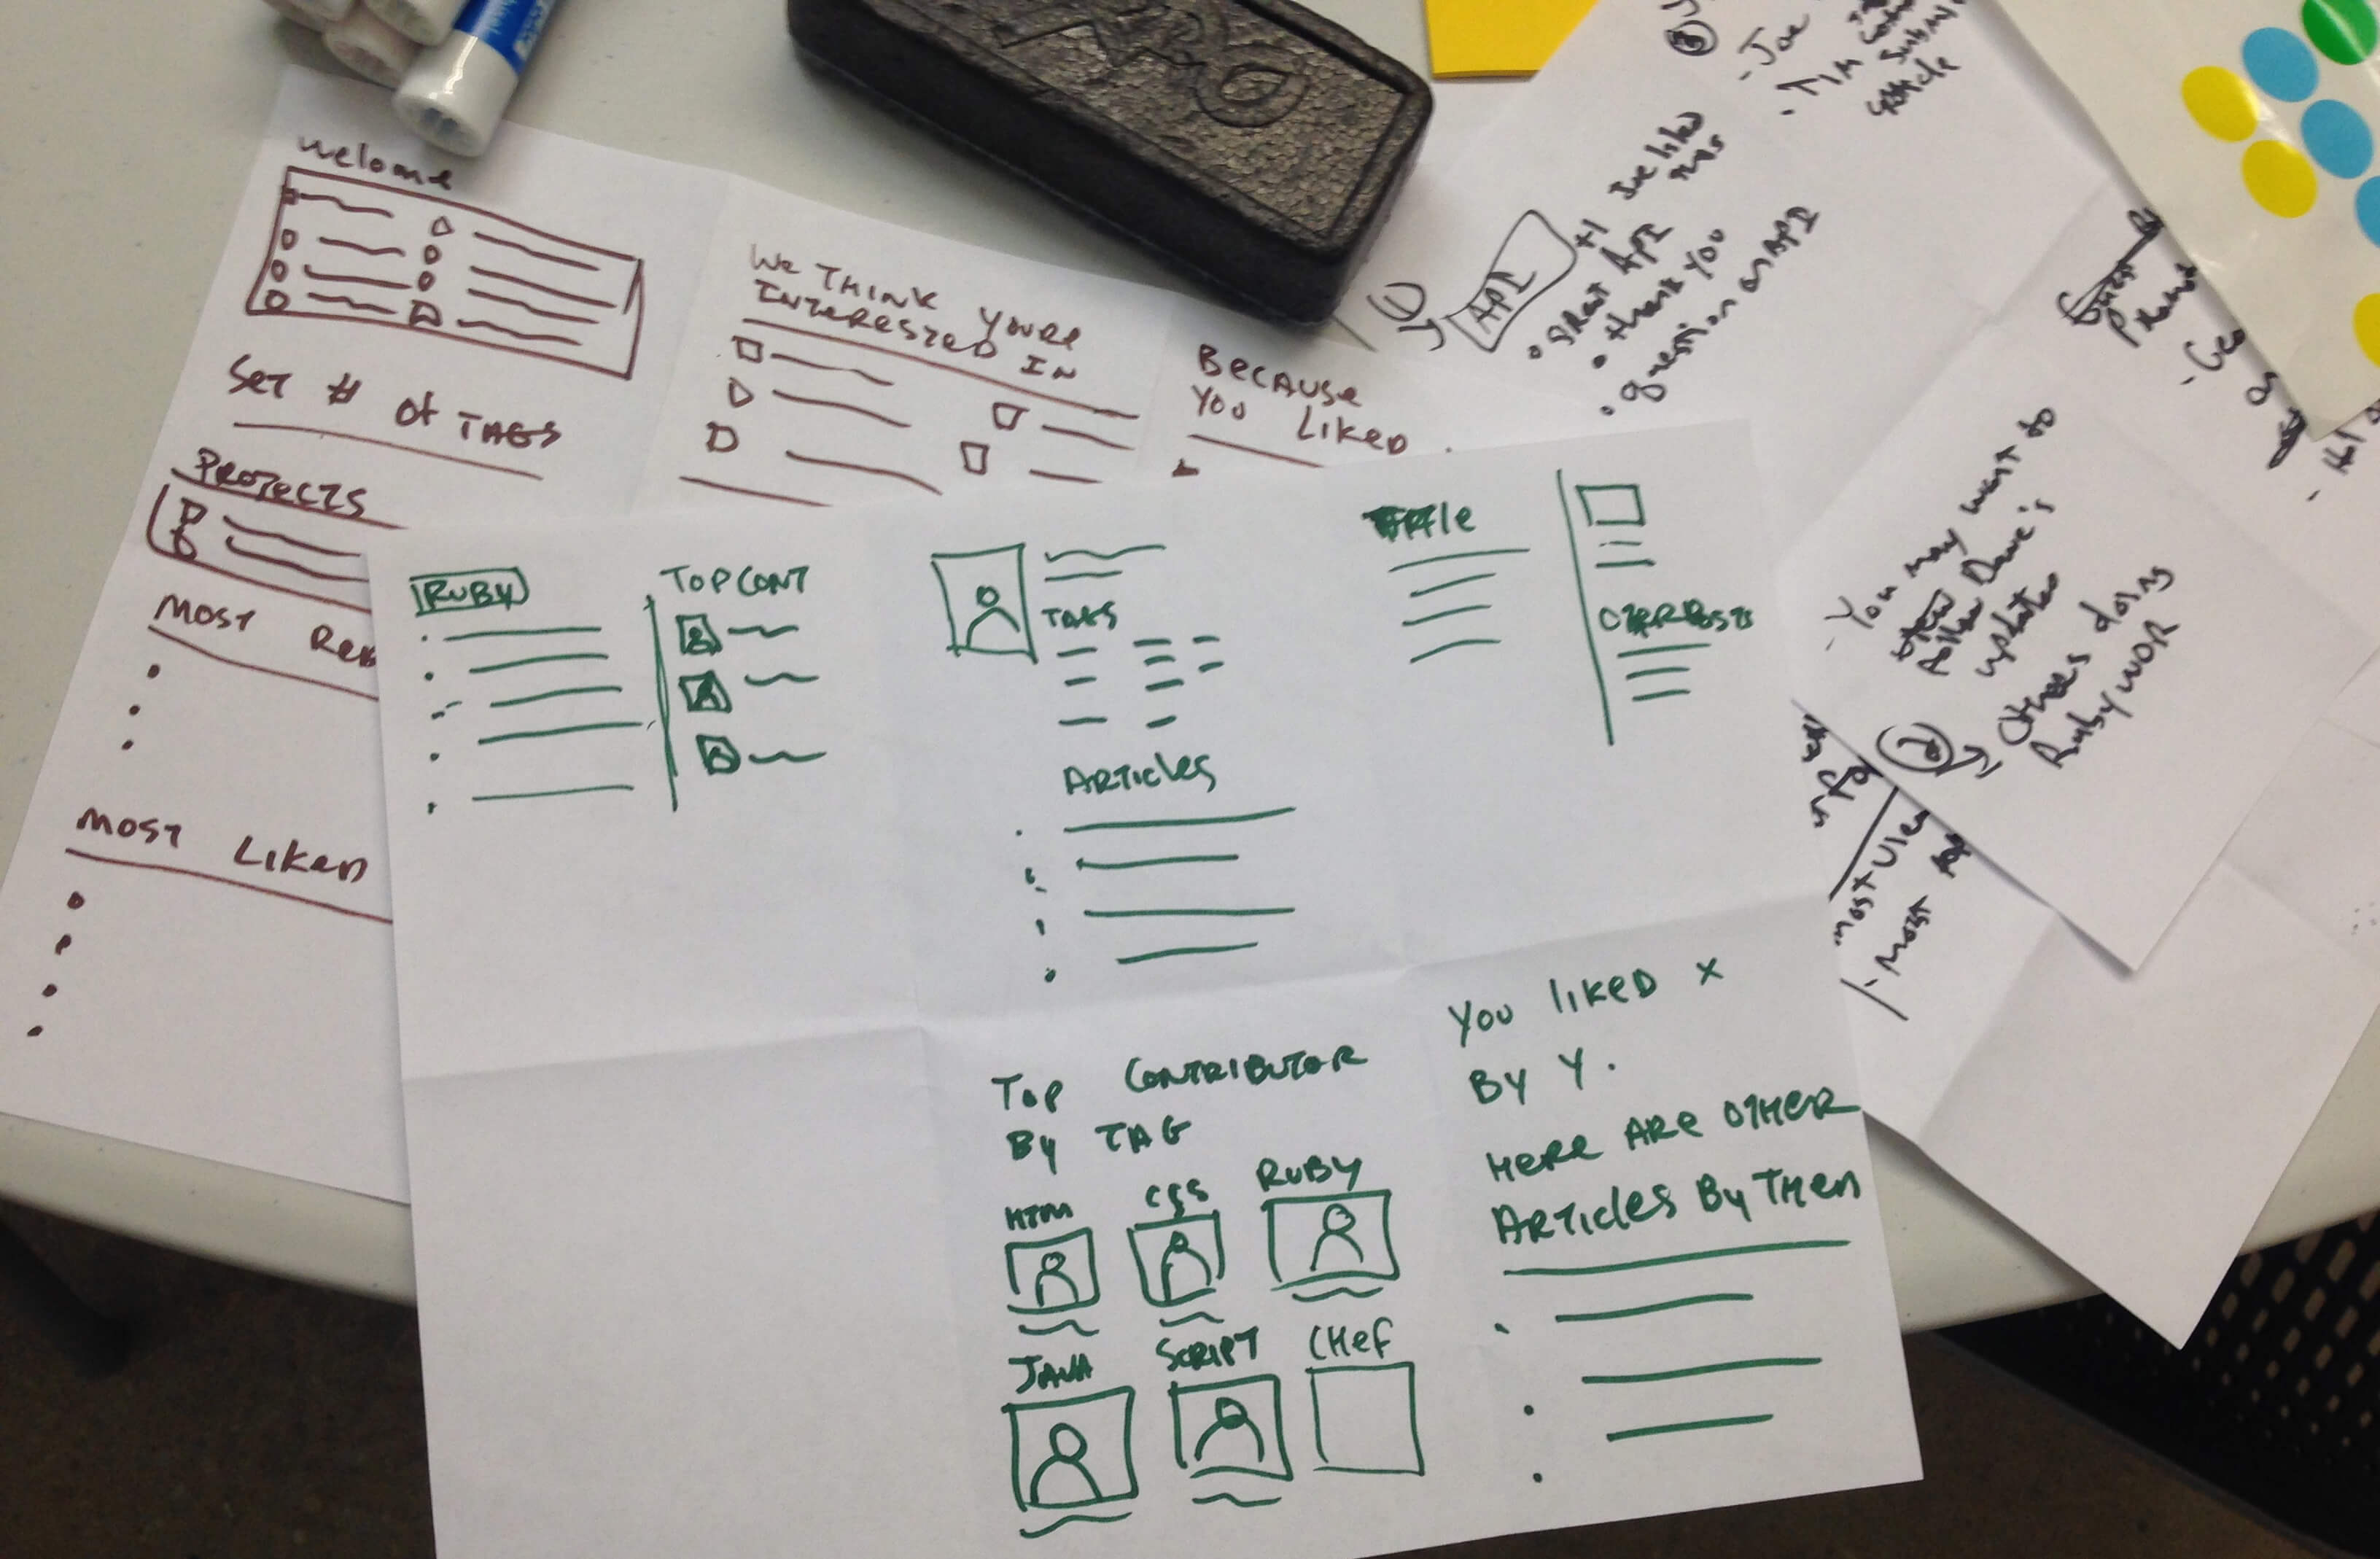 Welome
SET # Of TAGS
PROJECTS
MOST
MOST LIKED
We THINK YOURE
INTERESTED IN
BECAUSE
YOU LIKED
RUBY
TOP CONT
TAGS
ARTICLES
TOP CONTRIBUTOR
BY TAG
HTM
CSS
RUBY
JAVA
SCRIPT
CHEF
YOU LIKED X
BY Y.
HERE ARE OTHER
ARTICLES BY THEM
1
API
+1 Joe liked
this
• great API
• thank you
• question on API
3
- Joe
• Tim
article
- You may want to
follow Dave's
updates
2
Others doing
Ruby WOR
info
most
- most